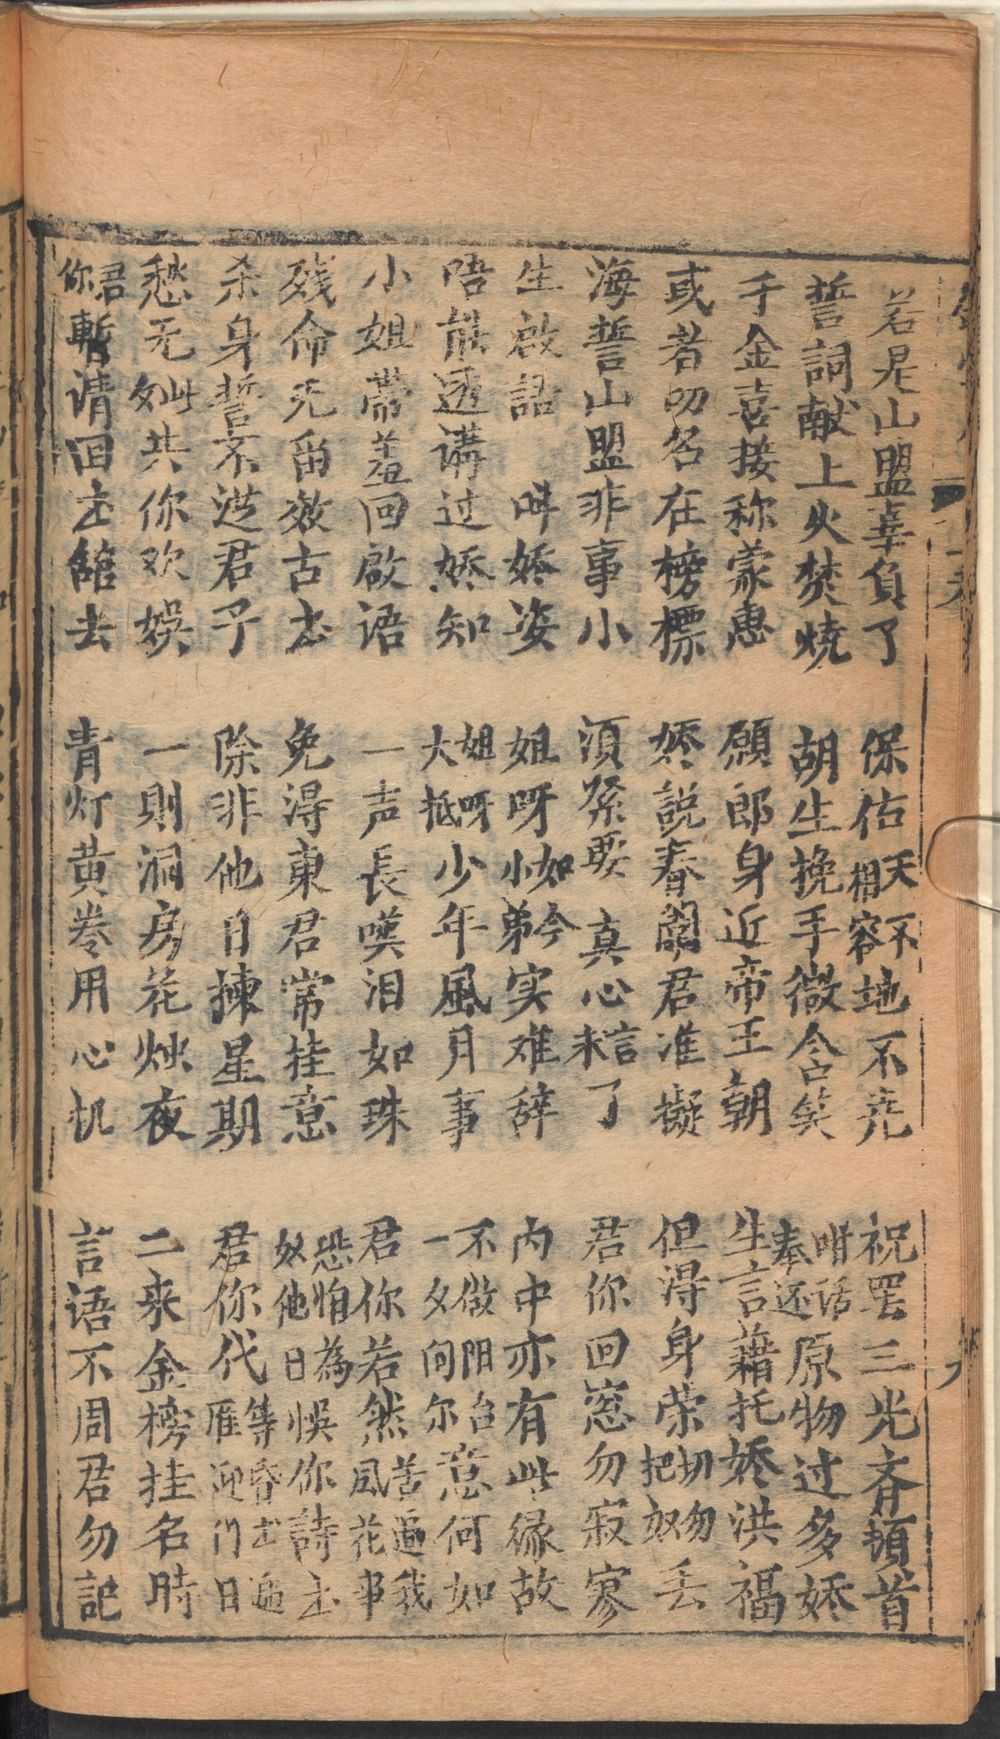 若是山盟辜負了 保佑天不相容地不尭 祝罢三光斉頓首
誓詞献上火焚燒 胡生挽手微含笑 咁话奉还原物过多娇
千金喜接称蒙惠 願郎身近帝王朝 生言藉托娇洪福
或者叨名在榜標 娇說春闈君准擬 但淂身荣切勿把奴丢
海誓山盟非事小 須緊要 真心未言了 君你回窓勿寂寥
生啟語 叫娇姿 姐呀如今小弟实难辞 内中亦有此缘故
唔能透講过娇知 姐呀大抵少年風月事 不做阳台一夕向尔意何如
小姐带羞回啟语 一声長嘆泪如珠 君你若然苦逼我風花事
残命无留效古书 免淂東君常挂意 恐怕為奴他日悞你詩书
杀身誓不 君子 除非他日揀星期 君你代等雁 迎门日
愁无 共你欢娱 一則洞房花烛夜 二来金榜挂名時
君你暫请回书舘去 青灯黄卷用心机 言语不周君勿記